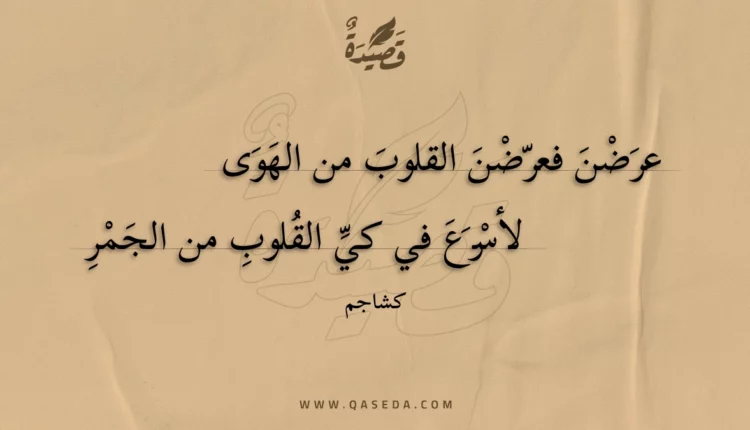 قَصِيدَةٌ
عرَضْنَ فعرّضْنَ القلوبَ من الهَوَى
لأسْرَعَ في كيِّ القُلوبِ من الجَمْرِ
كشاجم
WWW.QASEDA.COM